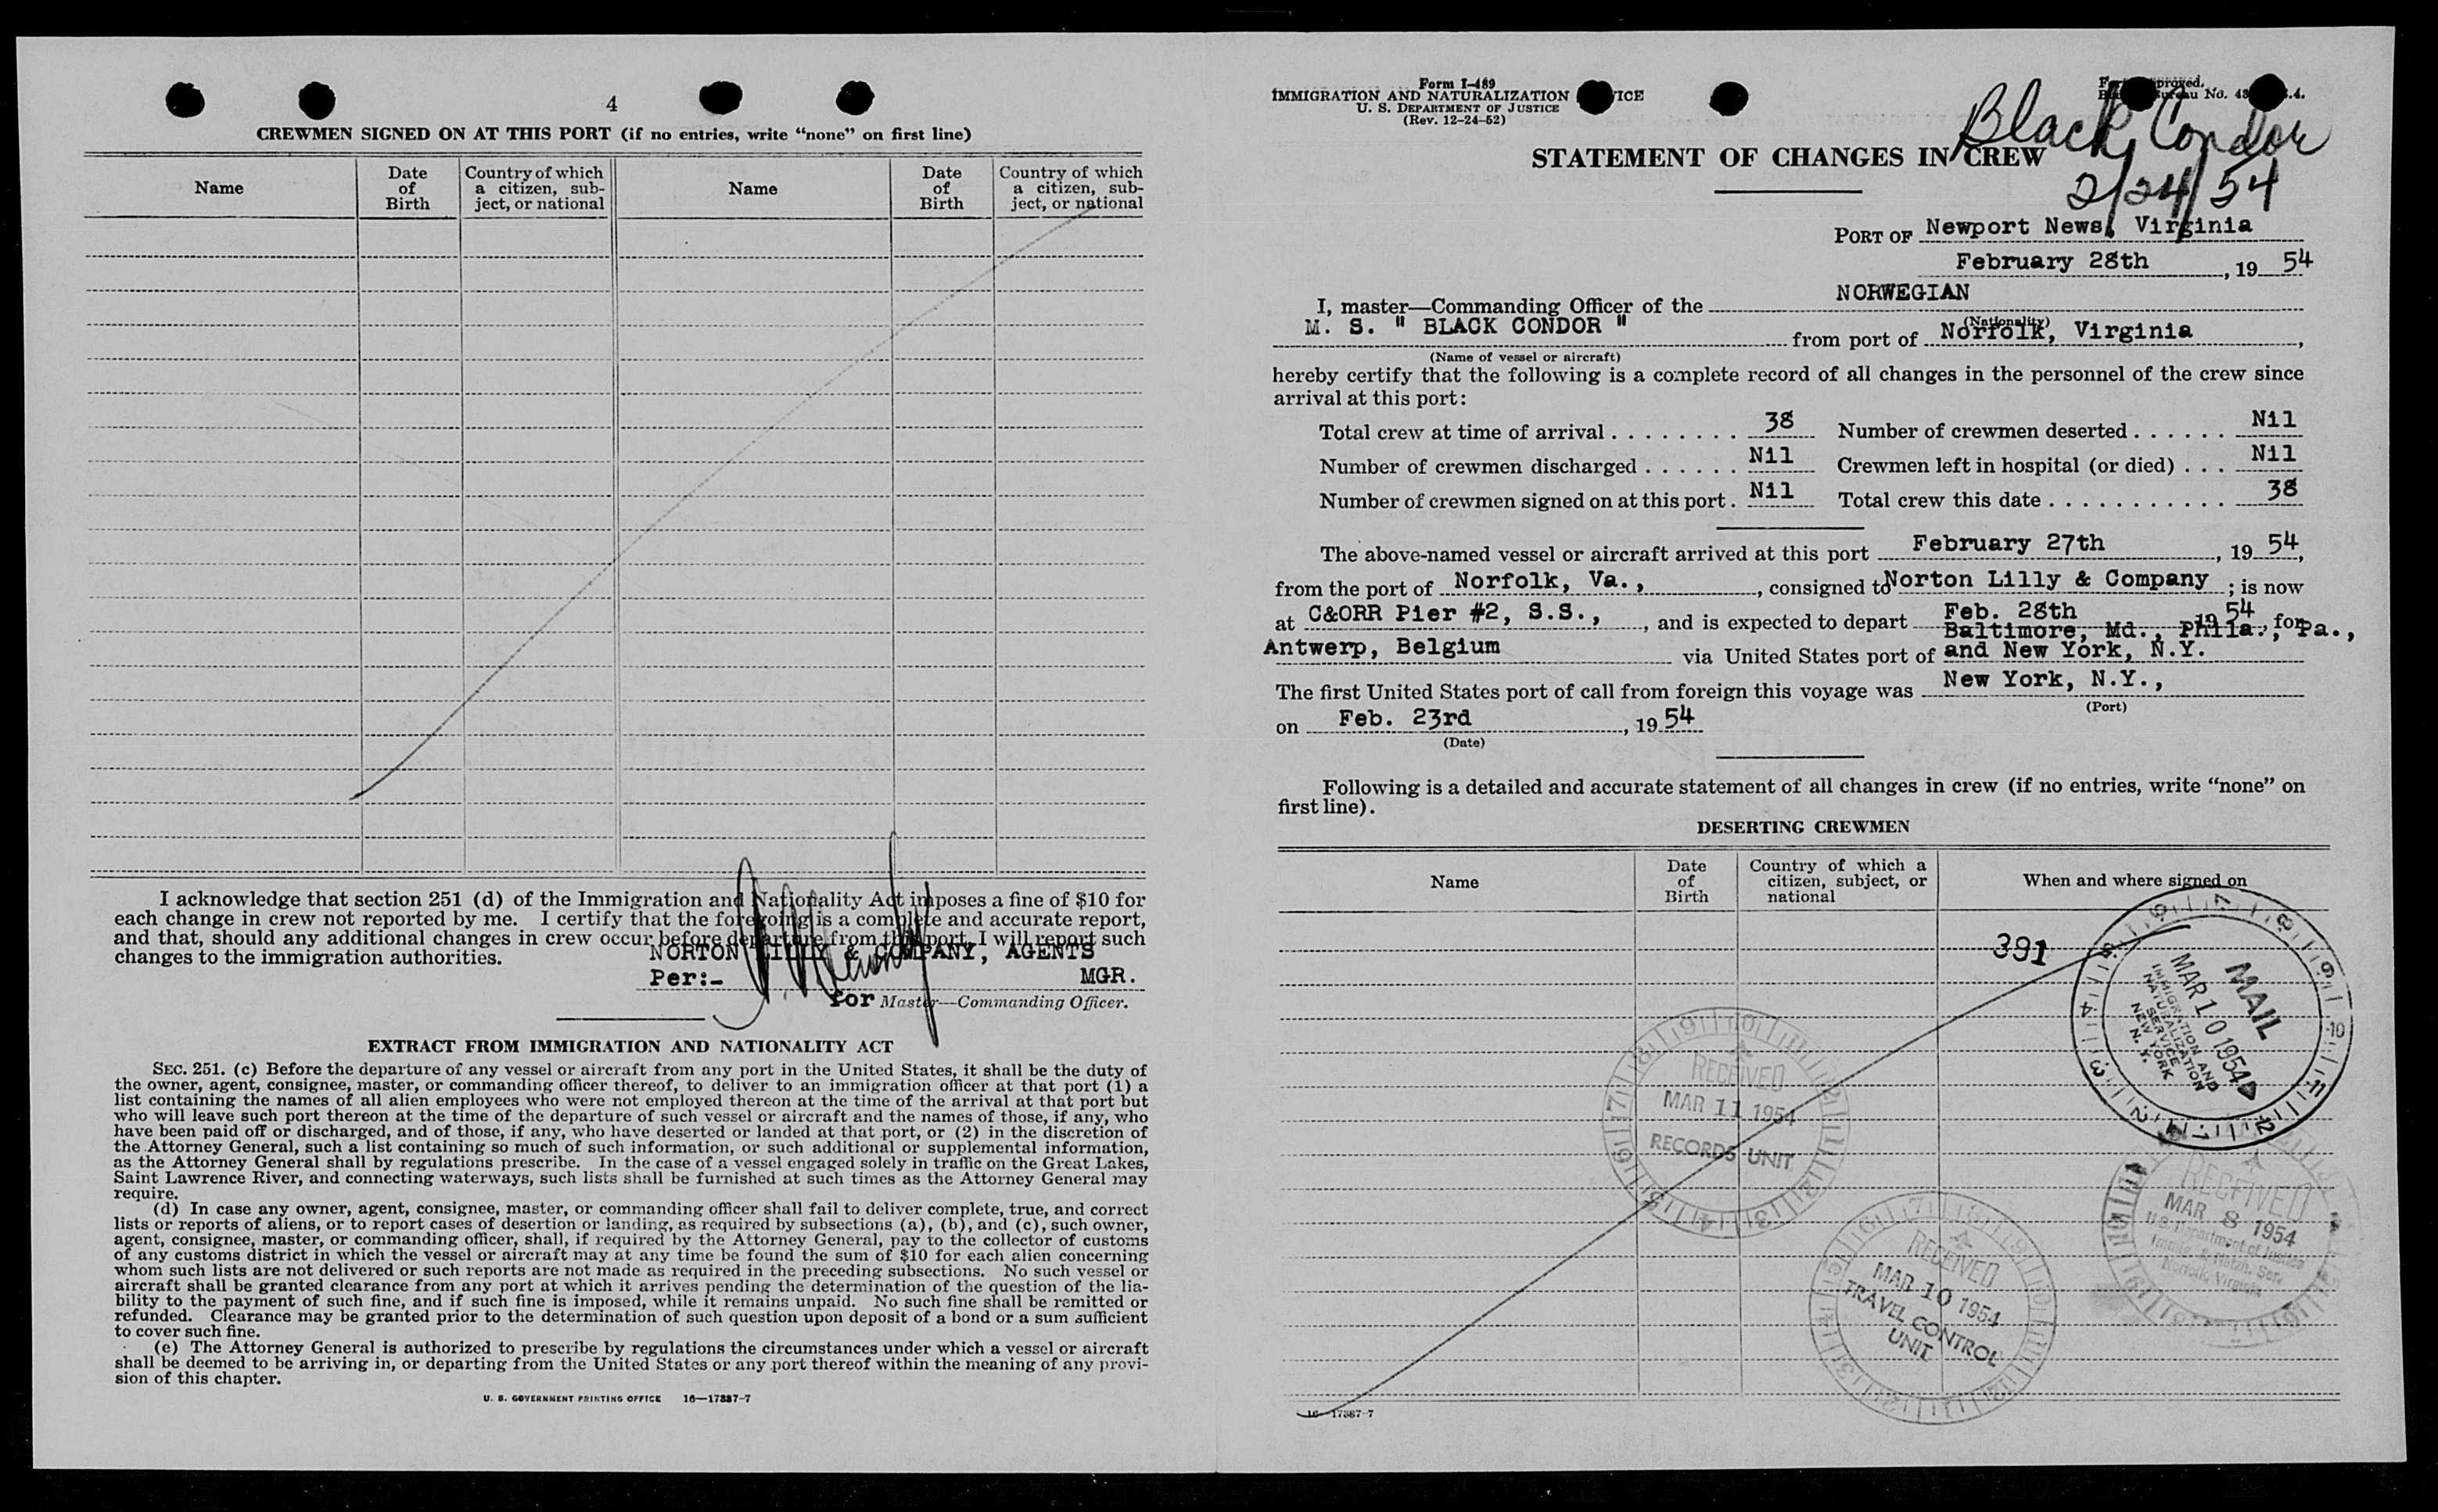 4
CREWMEN SIGNED ON AT THIS PORT (if no entries, write “none” on first line)
Name
Date of Birth
Country of which a citizen, subject, or national
Name
Date of Birth
Country of which a citizen, subject, or national
I acknowledge that section 251 (d) of the Immigration and Nationality Act imposes a fine of $10 for
each change in crew not reported by me. I certify that the foregoing is a complete and accurate report,
and that, should any additional changes in crew occur before departure from this port, I will report such
changes to the immigration authorities.
NORTON LILLY & COMPANY, AGENTS
Per:- MGR.
for Master—Commanding Officer.
EXTRACT FROM IMMIGRATION AND NATIONALITY ACT
SEC. 251. (c) Before the departure of any vessel or aircraft from any port in the United States, it shall be the duty of
the owner, agent, consignee, master, or commanding officer thereof, to deliver to an immigration officer at that port (1) a
list containing the names of all alien employees who were not employed thereon at the time of the arrival at that port but
who will leave such port thereon at the time of the departure of such vessel or aircraft and the names of those, if any, who
have been paid off or discharged, and of those, if any, who have deserted or landed at that port, or (2) in the discretion of
the Attorney General, such a list containing so much of such information, or such additional or supplemental information,
as the Attorney General shall by regulations prescribe. In the case of a vessel engaged solely in traffic on the Great Lakes,
Saint Lawrence River, and connecting waterways, such lists shall be furnished at such times as the Attorney General may
require.
(d) In case any owner, agent, consignee, master, or commanding officer shall fail to deliver complete, true, and correct
lists or reports of aliens, or to report cases of desertion or landing, as required by subsections (a), (b), and (c), such owner,
agent, consignee, master, or commanding officer, shall, if required by the Attorney General, pay to the collector of customs
of any customs district in which the vessel or aircraft may at any time be found the sum of $10 for each alien concerning
whom such lists are not delivered or such reports are not made as required in the preceding subsections. No such vessel or
aircraft shall be granted clearance from any port at which it arrives pending the determination of the question of the lia-
bility to the payment of such fine, and if such fine is imposed, while it remains unpaid. No such fine shall be remitted or
refunded. Clearance may be granted prior to the determination of such question upon deposit of a bond or a sum sufficient
to cover such fine.
(e) The Attorney General is authorized to prescribe by regulations the circumstances under which a vessel or aircraft
shall be deemed to be arriving in, or departing from the United States or any port thereof within the meaning of any provi-
sion of this chapter.
U. S. GOVERNMENT PRINTING OFFICE 16—17887-7
Form I-489
IMMIGRATION AND NATURALIZATION
U. S. DEPARTMENT OF JUSTICE
(Rev. 12-24-52)
Black Condor
2/24/54
STATEMENT OF CHANGES IN CREW
PORT OF Newport News, Virginia
February 28th, 19 54
I, master—Commanding Officer of the NORWEGIAN
(Nationality)
M. S. " BLACK CONDOR " from port of Norfolk, Virginia,
(Name of vessel or aircraft)
hereby certify that the following is a complete record of all changes in the personnel of the crew since
arrival at this port:
Total crew at time of arrival 38 Number of crewmen deserted Nil
Number of crewmen discharged Nil Crewmen left in hospital (or died) Nil
Number of crewmen signed on at this port Nil Total crew this date 38
The above-named vessel or aircraft arrived at this port February 27th, 19 54,
from the port of Norfolk, Va., , consigned to Norton Lilly & Company; is now
at C&ORR Pier #2, S.S., , and is expected to depart Feb. 28th 19 54, for
Baltimore, Md., Phila., Pa.,
Antwerp, Belgium via United States port of and New York, N.Y.
The first United States port of call from foreign this voyage was New York, N.Y.,
(Port)
on Feb. 23rd, 19 54
(Date)
Following is a detailed and accurate statement of all changes in crew (if no entries, write “none” on
first line).
DESERTING CREWMEN
Name
Date of Birth
Country of which a citizen, subject, or national
When and where signed on
391
MAIL
MAR 10 1954
IMMIGRATION AND
NATURALIZATION
SERVICE
NEW YORK
N. Y.
RECEIVED
MAR 11 1954
RECORDS UNIT
RECEIVED
MAR 8 1954
U.S. Department of Justice
Immig. & Natzn. Ser.
Norfolk, Virginia
RECEIVED
MAR 10 1954
TRAVEL CONTROL
UNIT
16—17887-7